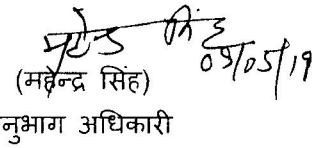 महेन्द्र सिंह
09/05/19
(महेन्द्र सिंह)
नुभाग अधिकारी